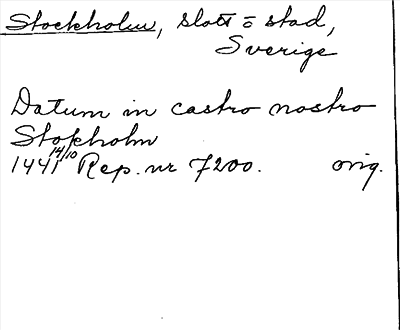 Stockholm, slott o stad,
Sverige
Datum in castro nostro
Stokholm
1441 14/10 Rep. nr 7200. orig.